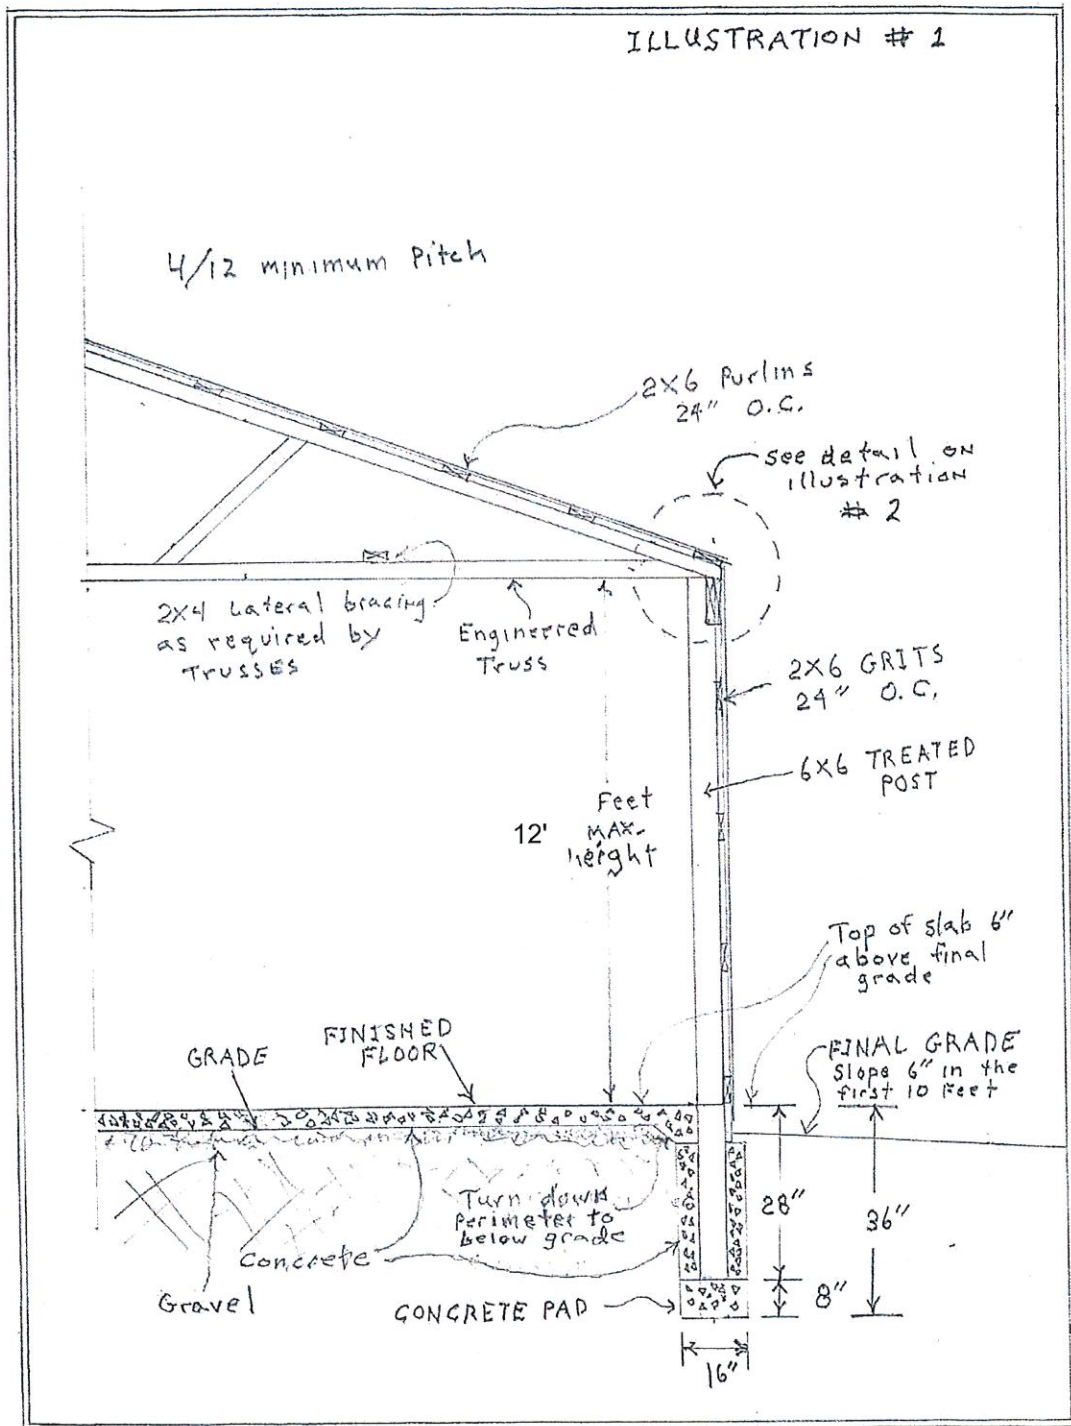 ILLUSTRATION # 1
4/12 minimum Pitch
2X6 Purlins
24" O.C.
see detail on
illustration
# 2
2X4 Lateral bracing
as required by
TRUSSES
Engineered
Truss
2X6 GRITS
24" O.C.
6X6 TREATED
POST
Feet
12' MAX.
height
Top of slab 6"
above final
grade
FINISHED
FLOOR
GRADE
FINAL GRADE
Slope 6" in the
first 10 Feet
Turn down
perimeter to
below grade
28"
36"
Concrete
Gravel
CONCRETE PAD
8"
16"